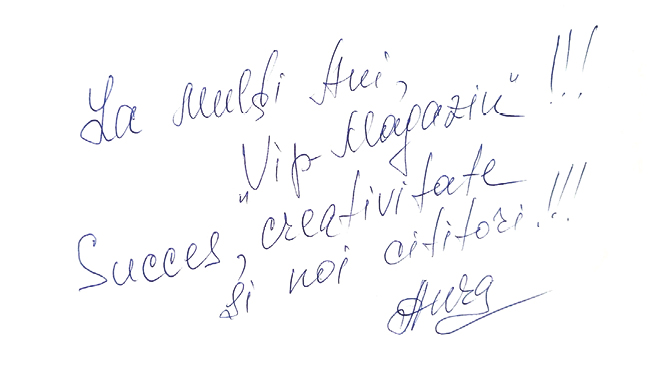 La mulți Ani,
"Vip Magazin" !!!
Succes, creativitate
și noi cititori!!!
Aura